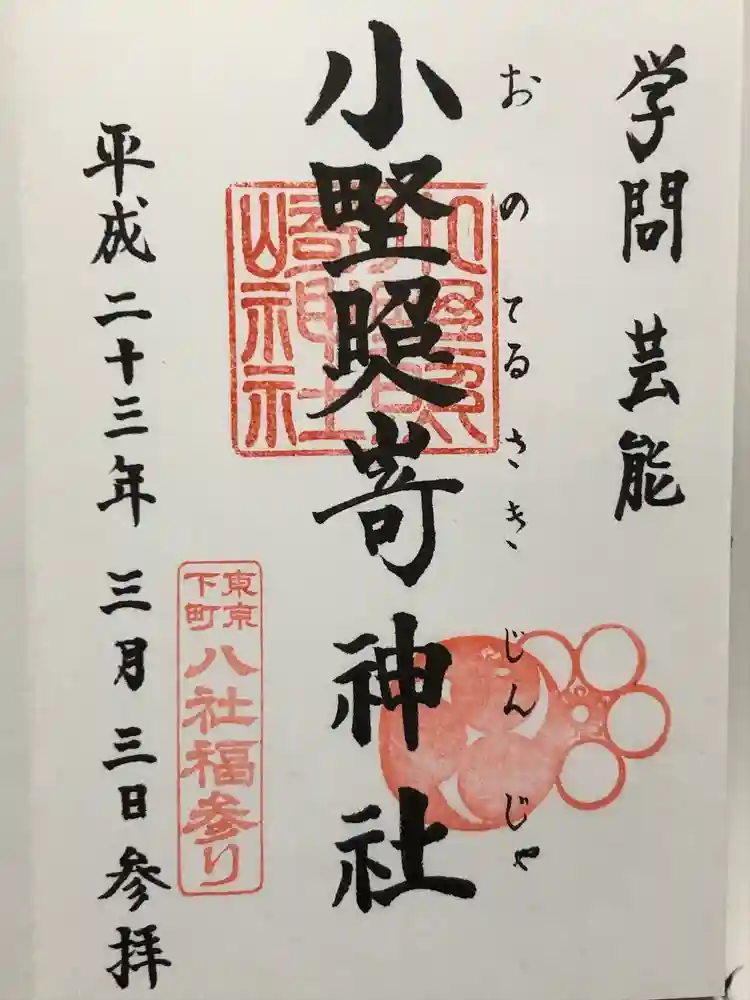 学問 芸能
おのてるさきじんじゃ
小野照嵜神社
小野照
崎神社
東京
下町
八社福参り
平成二十三年 三月三日参拝